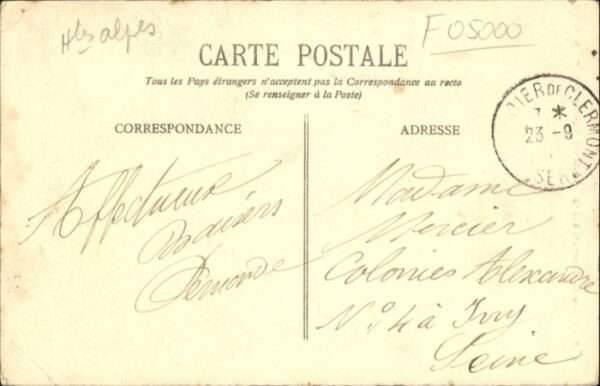 Htes alpes
F 05000
CARTE POSTALE
Tous les Pays étrangers n'acceptent pas la Correspondance au recto
(Se renseigner à la Poste)
CORRESPONDANCE
ADRESSE
Affectueux
Baisers
Madame
Mercier
Colonies Alexandre
N° 4 à Ivry
Seine
DE CLERMONT
23 -9